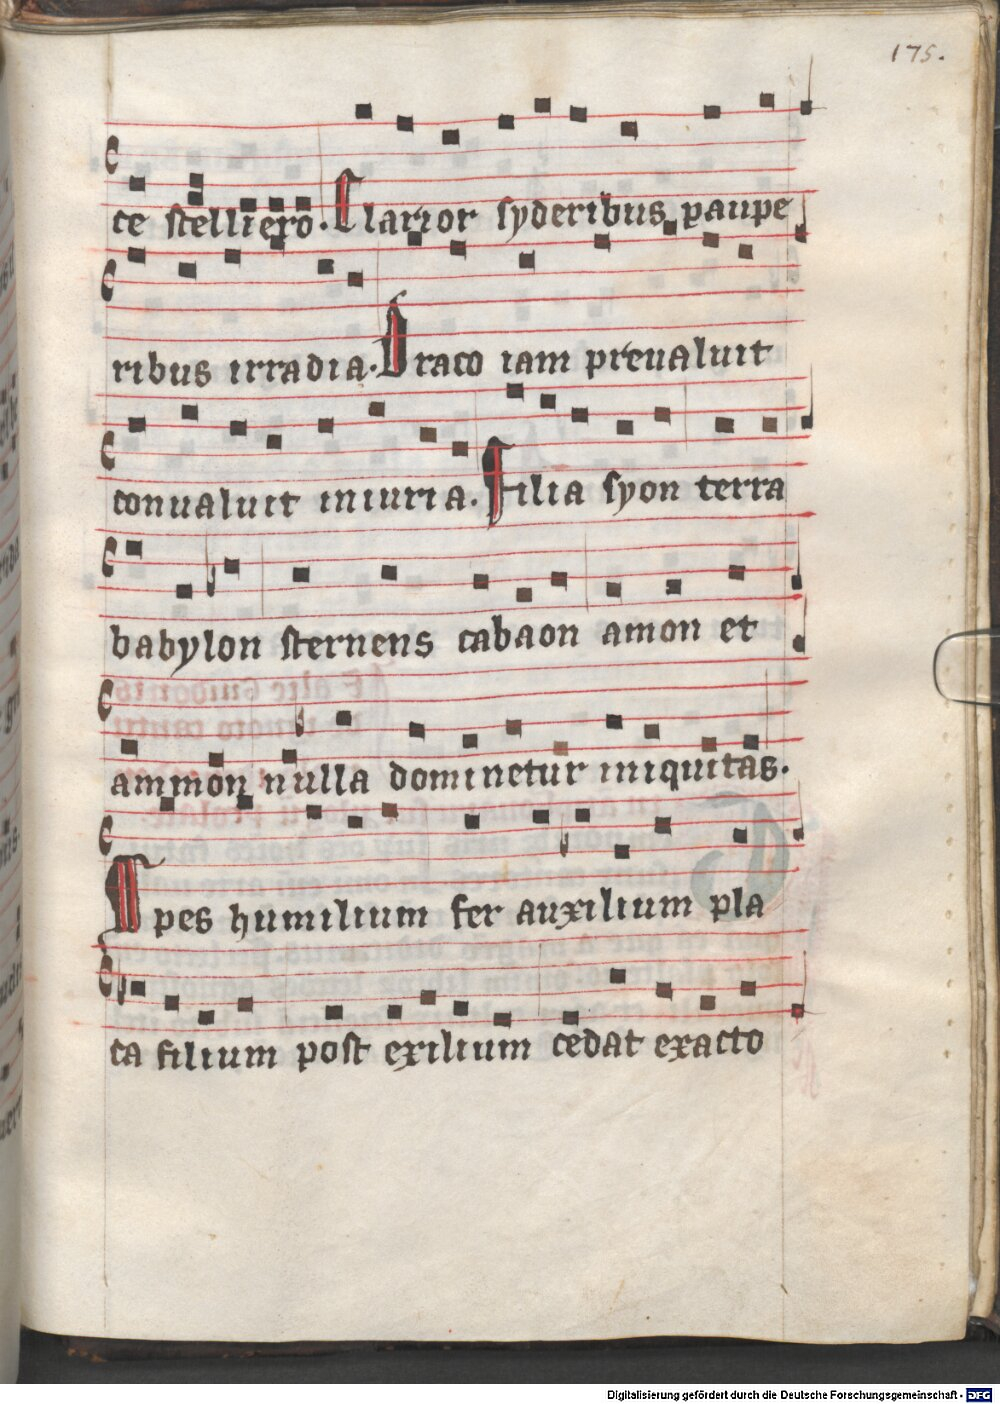 175.
ce stelliero. Clarior syderibus paupe
ribus irradia. Draco iam preualuit
conualuit iniuria. Filia syon terra
babylon sternens cabaon amon et
ammon nulla dominetur iniquitas.
Spes humilium fer auxilium pla
ca filium post exilium cedat exacto
Digitalisierung gefördert durch die Deutsche Forschungsgemeinschaft - DFG